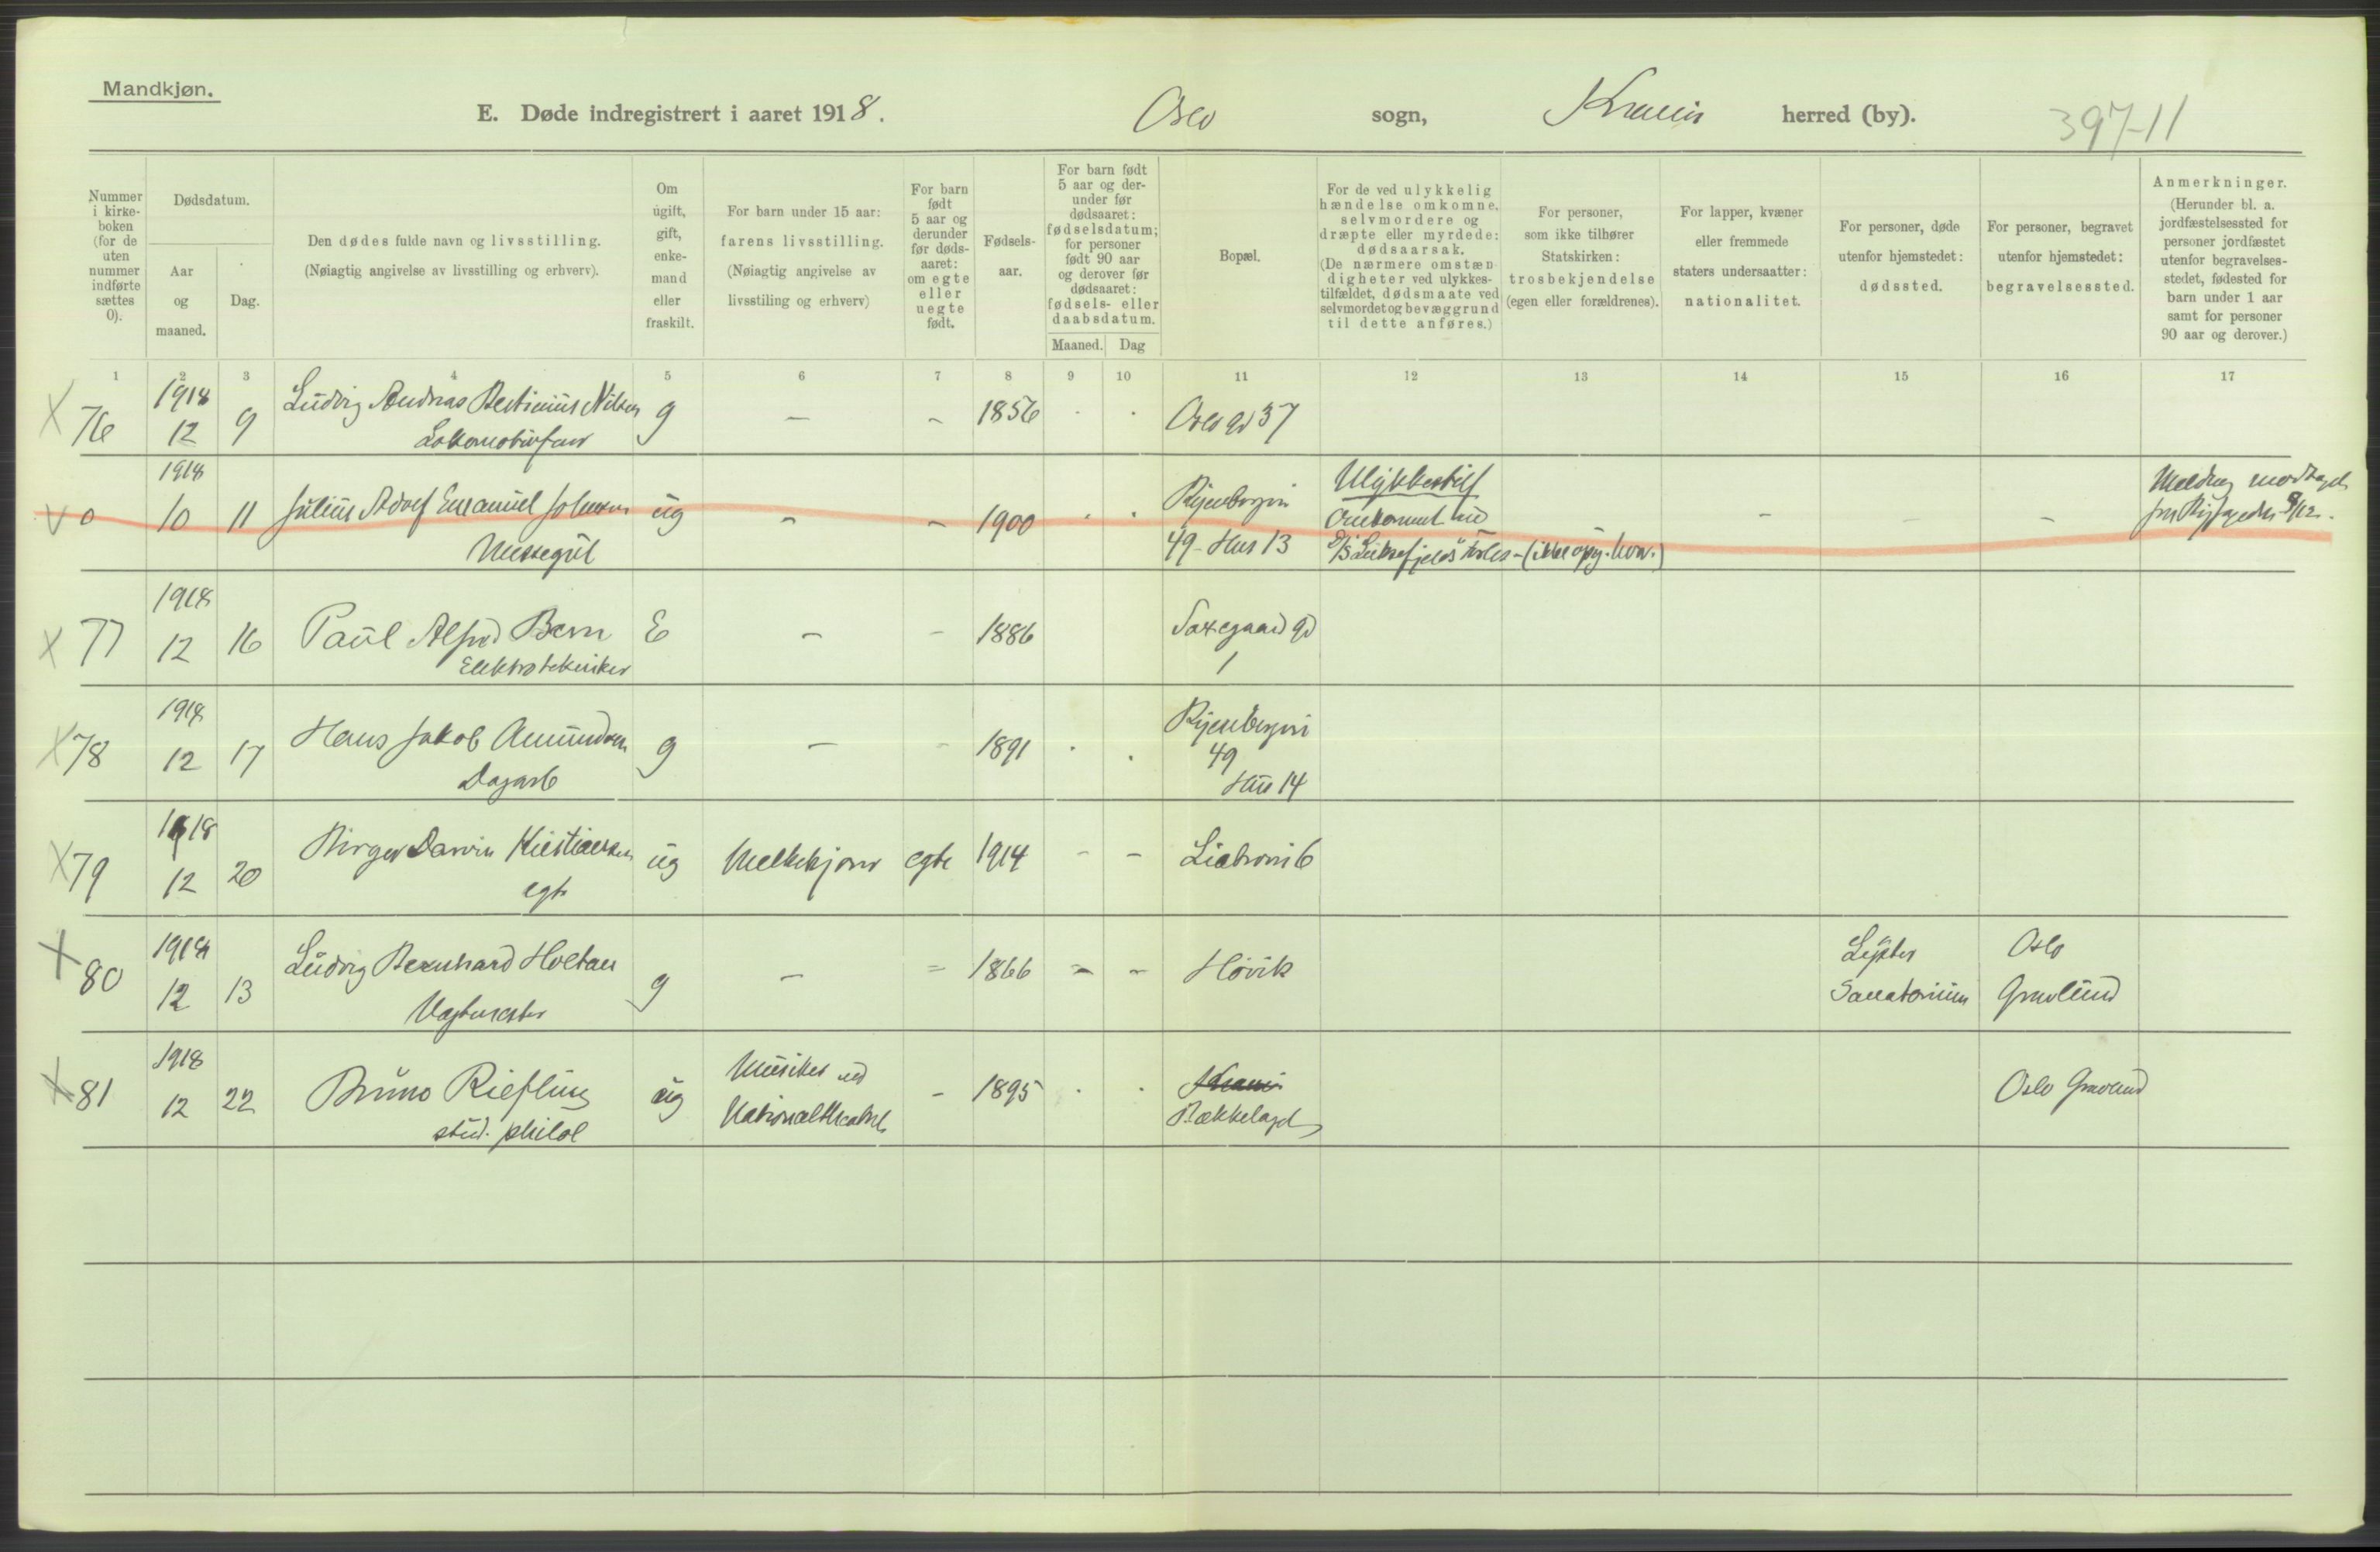 Mandkjøn.
E. Døde indregistrert i aaret 1918. Oslo sogn, herred (by). 397-11
Nummer i kirke-boken (for de uten nummer indførte sættes 0).
Dødsdatum.
Aar og maaned.
Dag.
Den dødes fulde navn og livsstilling.
(Nøiagtig angivelse av livsstilling og erhverv).
Om ugift, gift, enke-mand eller fraskilt.
For barn under 15 aar: farens livsstilling.
(Nøiagtig angivelse av livsstiling og erhverv)
For barn født 5 aar og derunder før døds-aaret: om egte eller uegte født.
Fødsels-aar.
For barn født 5 aar og der-under før dødsaaret: fødselsdatum; for personer født 90 aar og derover før dødsaaret: fødsels- eller daabsdatum.
Maaned. Dag
Bopæl.
For de ved ulykkelig hændelse omkomne, selvmordere og dræpte eller myrdede: dødsaarsak.
(De nærmere omstæn digheter ved ulykkes-tilfældet, dødsmaate ved selvmordet og bevæggrund til dette anføres.)
For personer, som ikke tilhører Statskirken: trosbekjendelse (egen eller forældrenes).
For lapper, kvæner eller fremmede staters undersaatter: nationalitet.
For personer, døde utenfor hjemstedet: dødssted.
For personer, begravet utenfor hjemstedet: begravelsessted.
Anmerkninger.
(Herunder bl. a. jordfæstelsessted for personer jordfæstet utenfor begravelses-stedet, fødested for barn under 1 aar samt for personer 90 aar og derover.)
1 2 3 4 5 6 7 8 9 10 11 12 13 14 15 16 17
X 76 1918 12 9 Ludvig Andreas Nilsen g - - 1856 Oslo gd 37
0 1918 10 11 Julius Adolf Emanuel Johnsen ug - - 1900 49 - Hus 13
Messegut
X 77 1918 12 16 Paul Alfred Bern E - - 1886 Saxegaard gd 1
Elektrotekniker
X 78 1918 12 17 Hans Jakob Amundsen g - - 1891 49 Hus 14
Dagarb
X 79 1918 12 20 Birger Darwin Kristiansen ug egte 1914 - -
X 80 1918 12 13 Ludvig Bernhard Holtan g - = 1866 - - Høvik Lyster Sanatorium Oslo Gravlund
Vagtmester
X 81 1918 12 22 Bruno Riefling ug Musiker ved Nationaltheatret - 1895 Bækkelaget Oslo Gravlund
stud. philol